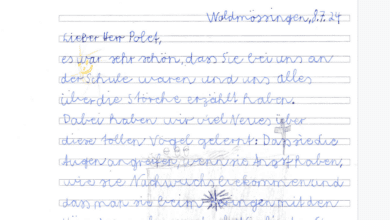 Waldmössingen, 8.7.24
Lieber Herr Polet,
es war sehr schön, dass Sie bei uns an
der Schule waren und uns alles
über die Störche erzählt haben.
Dabei haben wir viel Neues über
diese tollen Vogel gelernt: Dass sie die
Augen angreifen, wenn sie Angst haben,
wie sie Nachwuchs bekommen und
dass man sie beim